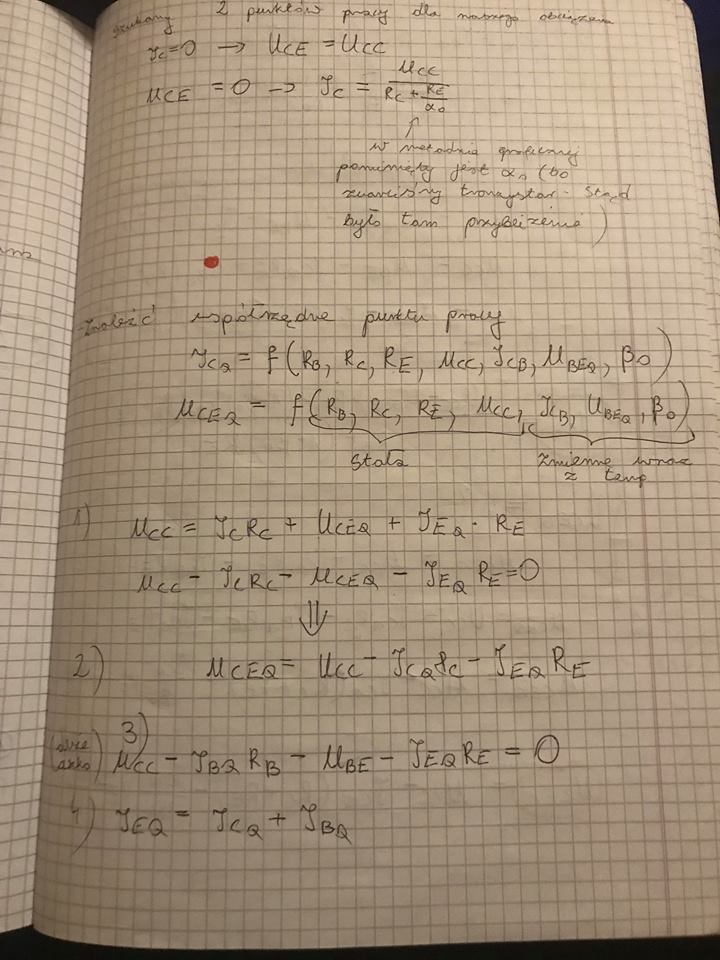 szukamy 2 punktów pracy dla naszego obciążenia
I_C=0 → U_CE = U_CC
U_CE = 0 → I_C = U_CC / (R_C + R_E/α_0)
↑
w metodzie graficznej
pominięty jest α_0 (bo
zwarliśmy tranzystor - stąd
było tam przybliżenie)
- Znaleźć współrzędne punktu pracy
I_CQ = f(R_B, R_C, R_E, U_CC, I_CB, U_BEQ, β_0)
U_CEQ = f(R_B, R_C, R_E, U_CC, I_CB, U_BEQ, β_0)
Stała Zmienne wraz
z temp
1) U_CC = I_C R_C + U_CEQ + I_EQ · R_E
U_CC - I_C R_C - U_CEQ - I_EQ R_E = 0
⇓
2) U_CEQ = U_CC - I_CQ R_C - I_EQ R_E
3)
U_CC - I_BQ R_B - U_BE - I_EQ R_E = 0
4) I_EQ = I_CQ + I_BQ